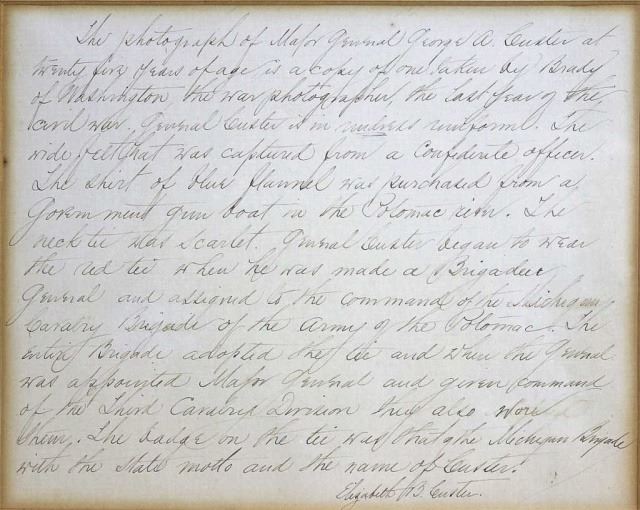 The photograph of Major General George A. Custer at
twenty five years of age is a copy of one taken by Brady
of Washington, the war photographer, the last year of the
civil war. General Custer is in undress uniform. The
wide felt hat was captured from a Confederate officer.
The shirt of blue flannel was purchased from a
Government gun boat in the Potomac river. The
neck tie was scarlet. General Custer began to wear
the red tie when he was made a Brigadier
General and assigned to the command of the Michigan
Cavalry Brigade of the Army of the Potomac. The
entire Brigade adopted the tie and when the General
was appointed Major General and given command
of the Third Cavalry Division they also wore
them. The badge on the tie was that of the Michigan Brigade
with the state motto and the name of Custer.
Elizabeth B. Custer.